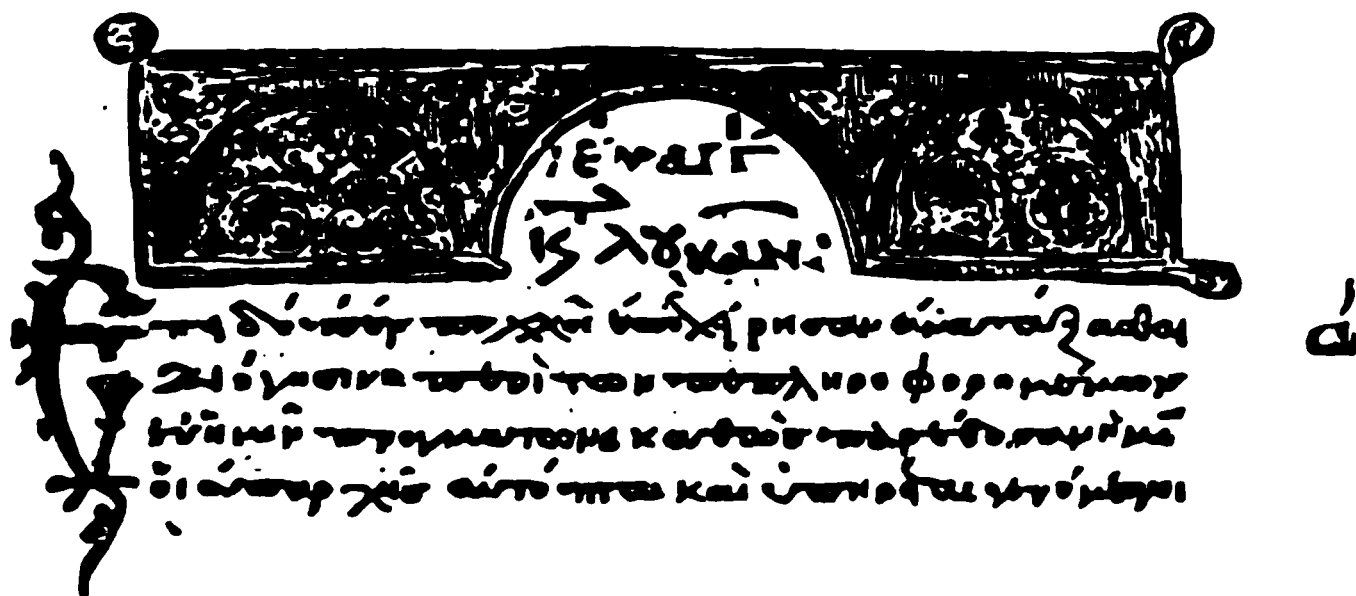 λουκαν:
Ἐπειδήπερ πολλοὶ ἐπεχείρησαν ἀνατάξασθαι
διήγησιν περὶ τῶν πεπληροφορημένων
ἐν ἡμῖν πραγμάτων· καθὼς παρέδοσαν ἡμῖ
οἱ ἀπαρχῆς αὐτόπται καὶ ὑπηρέται γενόμενοι